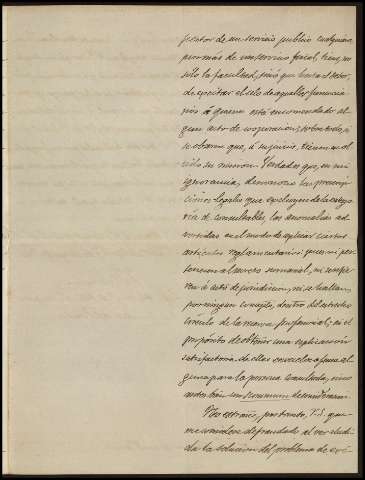 pector de un servicio público cualquiera,
por más de un servicio fiscal, tiene, no
sólo la facultad, sinó que hasta el deber,
de excitar el celo de aquellos funciona
rios, á quienes está encomendado al
gun acto de cooperacion, sobre todo, si
se observa que, á su juicio, tienen en ol
vido su mision. Verdad es que, en mi
ignorancia, desconozco las prescrip
ciones legales que excluyen de la catego
ria de consultables las anomalías ad
vertidas en el modo de aplicar ciertos
artículos reglamentarios que ni per
tenecen al secreto sumarial, ni se refie
ren á actos de jurisdiccion, ni se hallan,
por ningun concepto, dentro del estrecho
círculo de la reserva profesional; ni el
propósito de obtener una explicacion
satisfactoria de ellas envuelve ofensa al
guna para la persona consultada, sinó
antes bien un
de consideracion.
No extrañe, por tanto, V.S. que
me considere defraudado al ver eludi
da la solucion del problema de